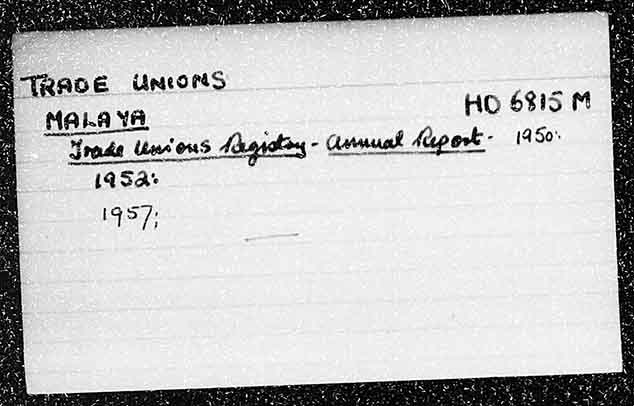 TRADE UNIONS
MALAYA HD 6815 M
Trade Unions Registry - Annual Report - 1950:
1952:
1957;